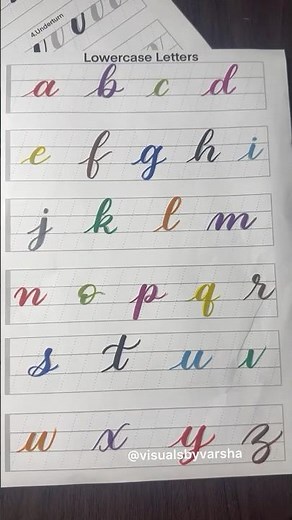 4.Underturn
Lowercase Letters
a b c d
e f g h i
j k l m
n o p q r
s t u v
w x y z
@visualsbyvarsha